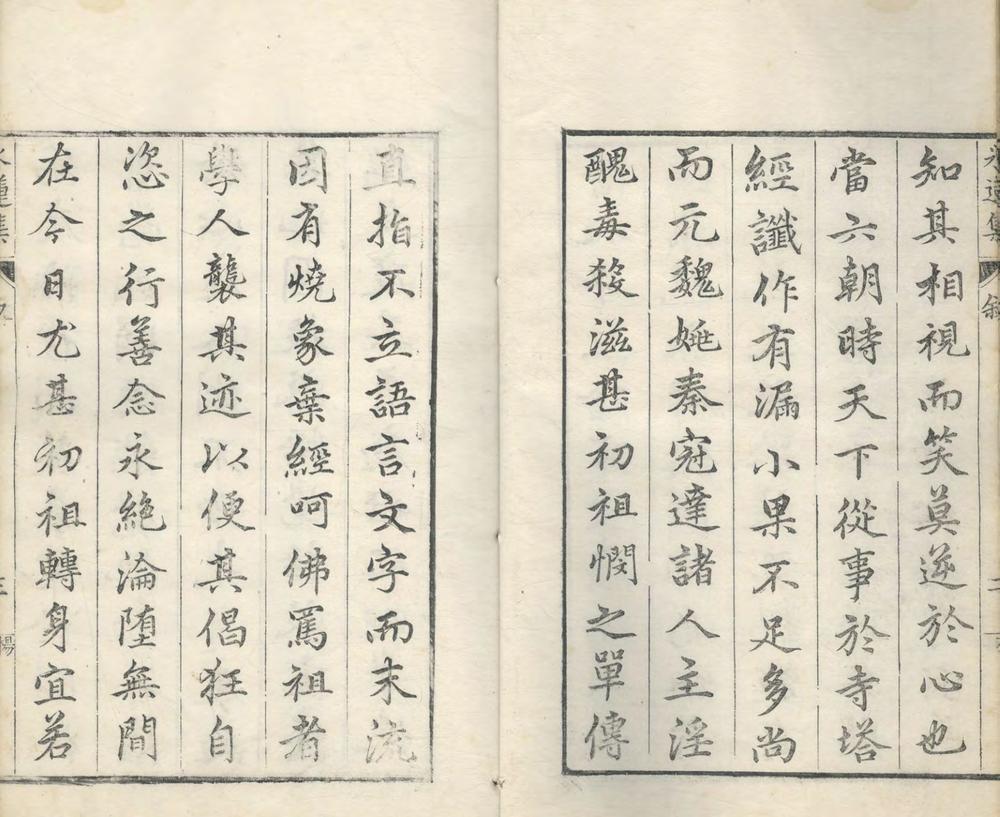 知其相視而笑莫逆於心也
當六朝時天下從事於寺塔
經讖作有漏小果不足多尚
而元魏姚秦寇達諸人主淫
醜毒殺滋甚初祖憫之單傳
直指不立語言文字而末流
因有燒象棄經呵佛罵祖者
學人襲其迹以便其倡狂自
恣之行善念永絶淪墮無間
在今日尤甚初祖轉身宜若